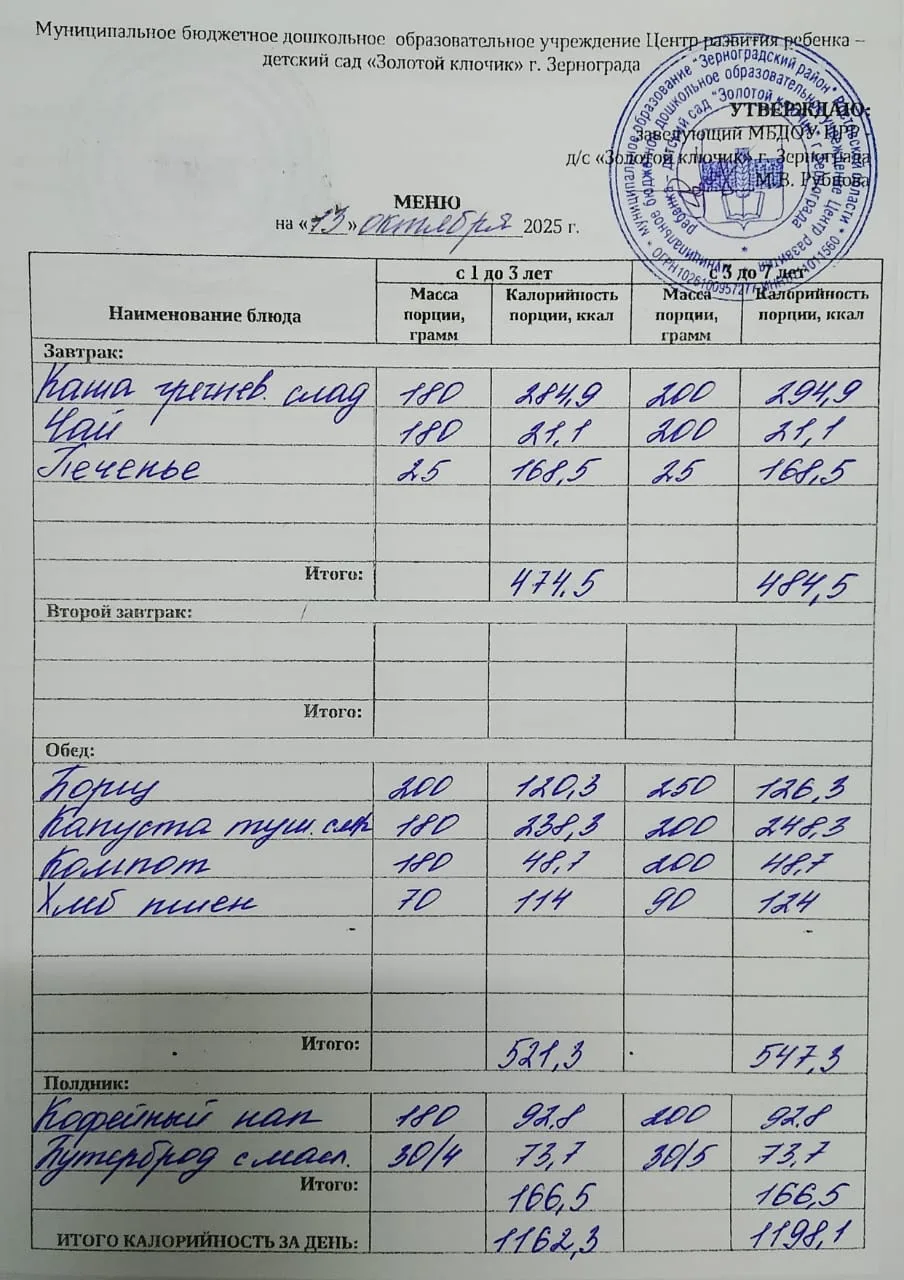 Муниципальное бюджетное дошкольное образовательное учреждение Центр развития ребенка –
детский сад «Золотой ключик» г. Зернограда
УТВЕРЖДАЮ:
Заведующий МБДОУ ЦРР –
д/с «Золотой ключик» г. Зернограда
М.В. Рубцова
МЕНЮ
на «13» октября 2025 г.
Наименование блюда с 1 до 3 лет с 3 до 7 лет
Масса порции, грамм Калорийность порции, ккал Масса порции, грамм Калорийность порции, ккал
Завтрак:
Каша гречнев. слад 180 284,9 200 294,9
Чай 180 21,1 200 21,1
Печенье 25 168,5 25 168,5
Итого: 474,5 484,5
Второй завтрак:
Итого:
Обед:
Борщ 200 120,3 250 126,3
Капуста туш. 180 238,3 200 248,3
Компот 180 48,7 200 48,7
Хлеб пшен 70 114 90 124
Итого: 521,3 547,3
Полдник:
Кофейный нап 180 92,8 200 92,8
Бутерброд с масл. 30/4 73,7 30/5 73,7
Итого: 166,5 166,5
ИТОГО КАЛОРИЙНОСТЬ ЗА ДЕНЬ: 1162,3 1198,1